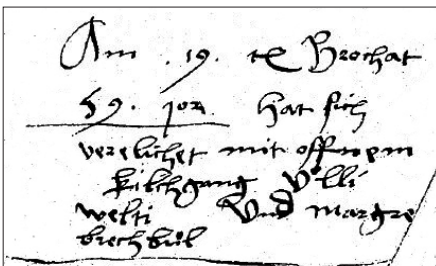 Am . 19. te Brochat
59. jor hat sich
verelichet mit offnem
kilchgang Villi
welti Vnd margre
brechbül